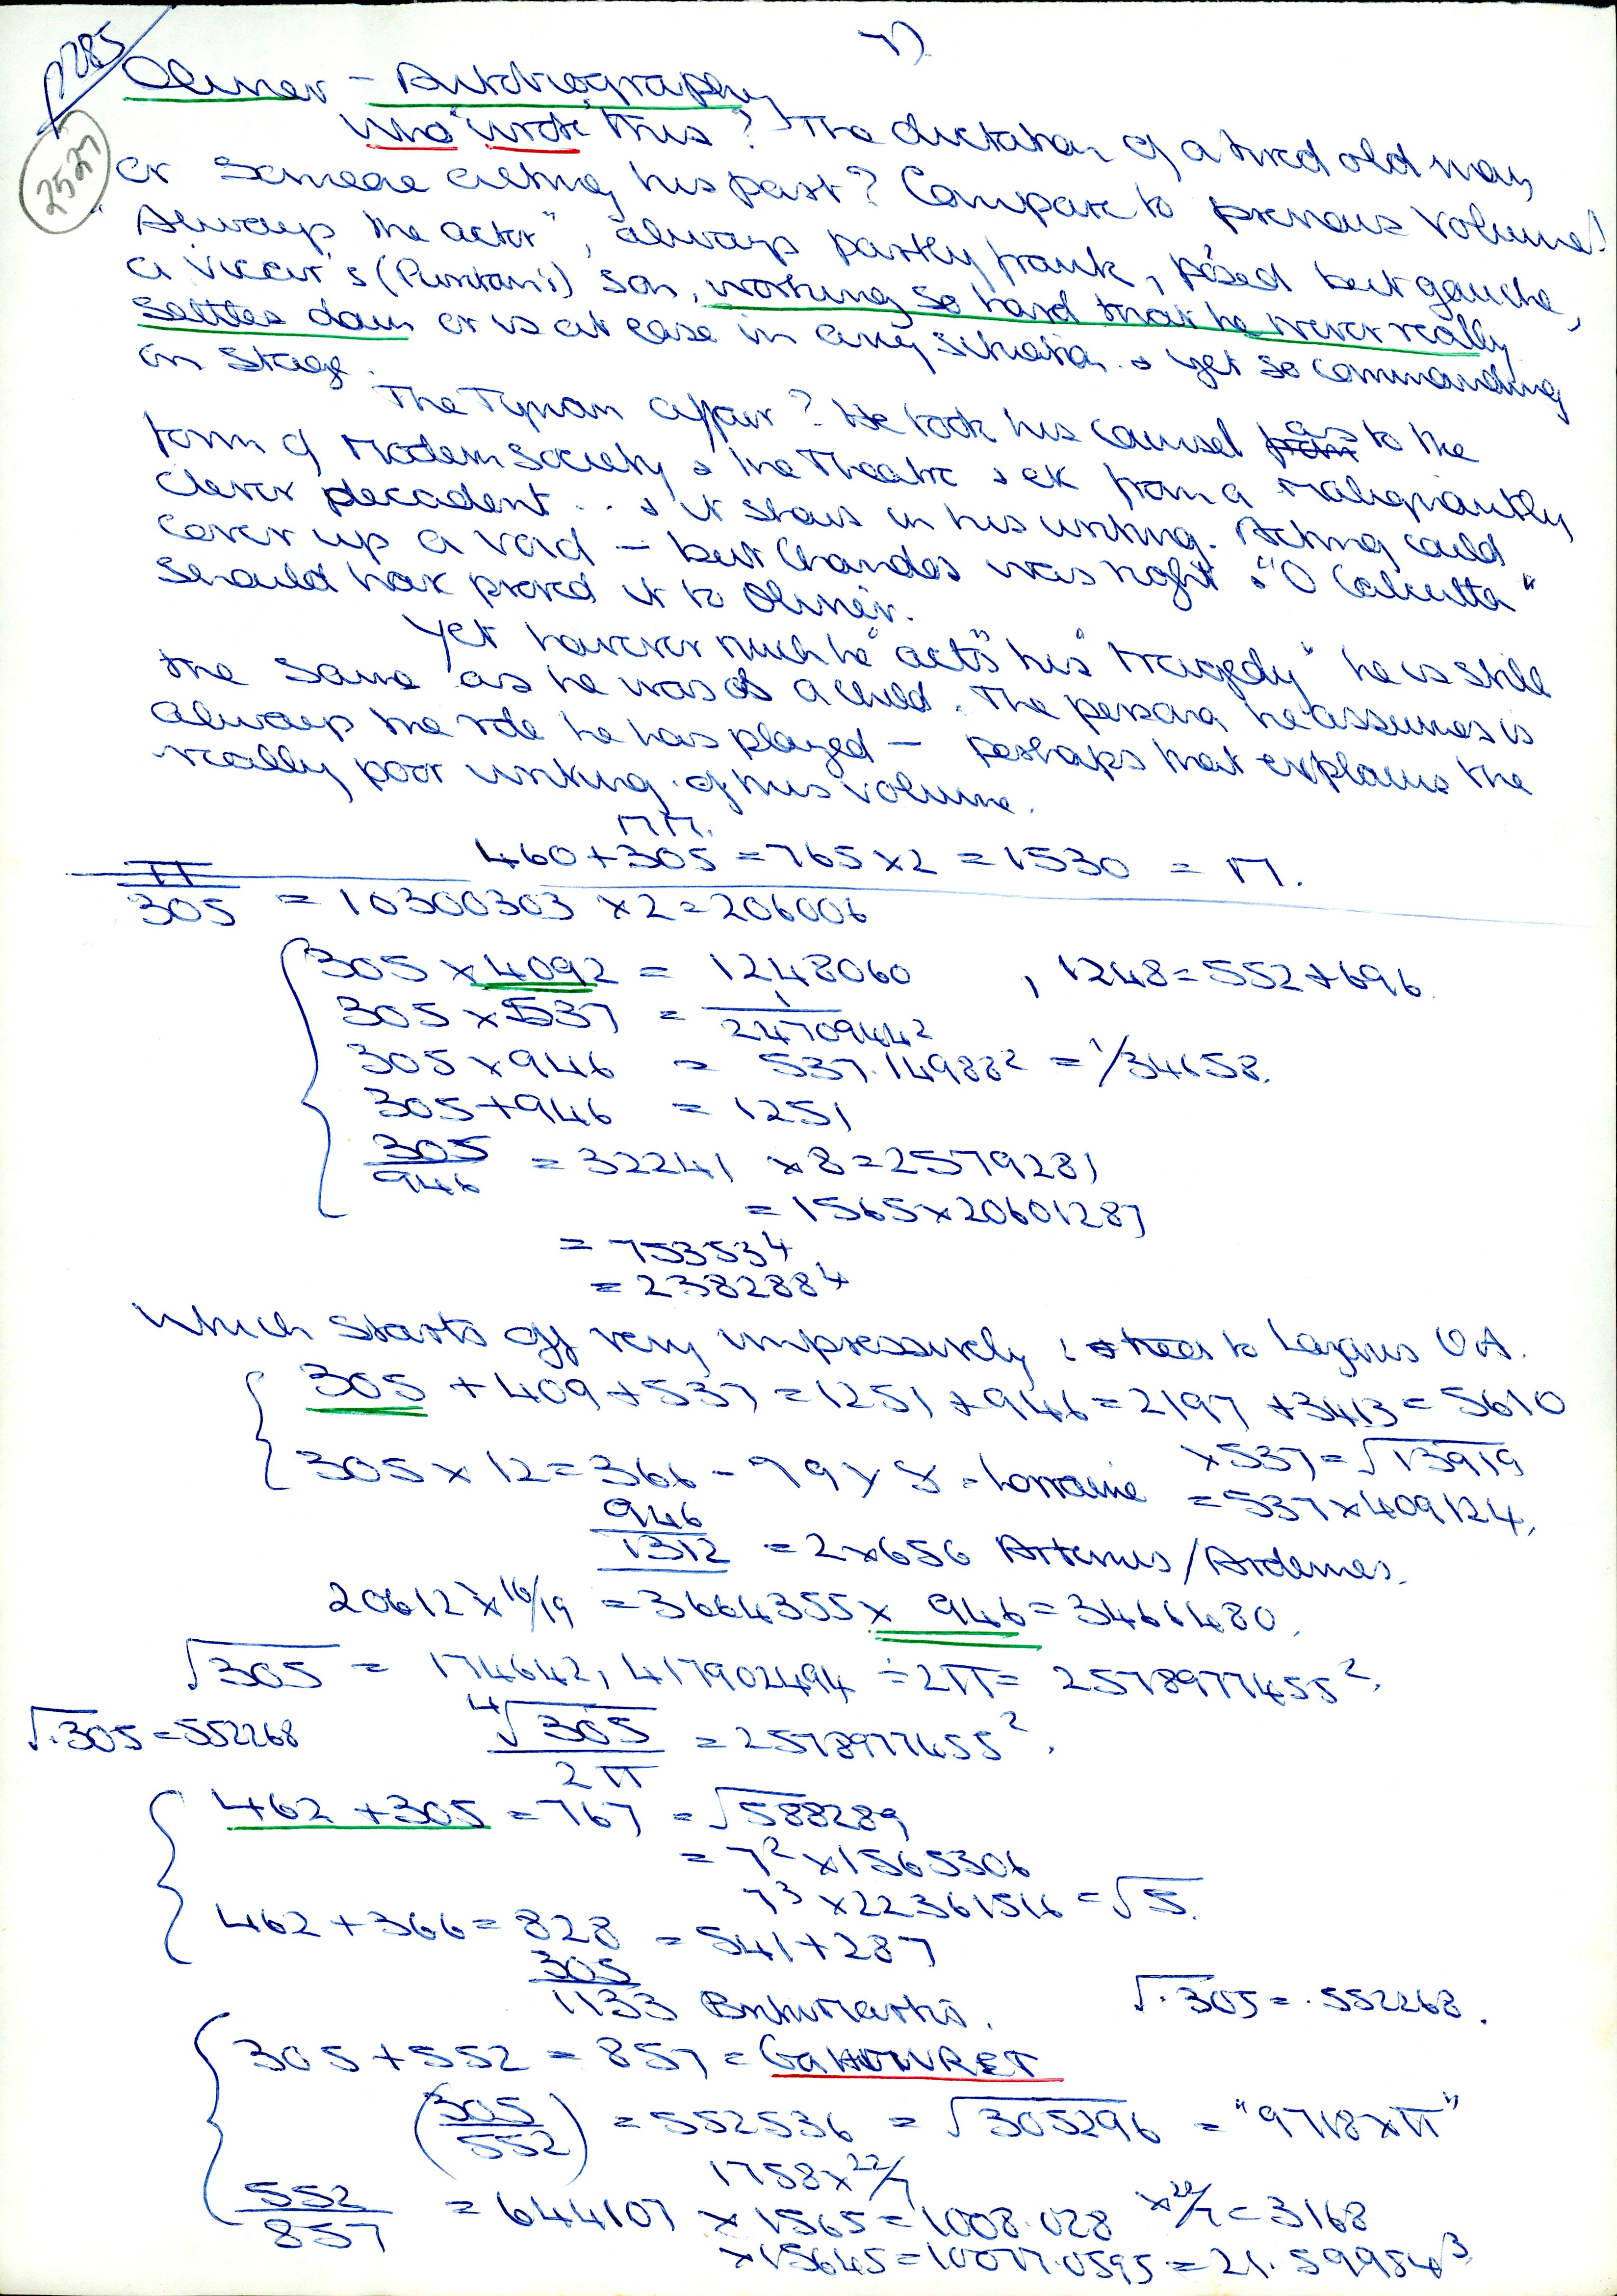 7).
p285
2527
Olivier – Autobiography
Who "wrote" this? The dictation of a tired old man,
or someone acting his past? Compare to previous Volume!
"Always the actor", always partly frank, posed but gauche,
a vicar's (Puritan's) son, working so hard that he never really
settles down or is at ease in any situation & yet so commanding
on stage.
The Tynan affair? He took his counsel as to the
form of Modern Society & the Theatre & ek from a malignantly
clever decadent... & it shows in his writing. Acting could
cover up a void – but Chandos was right & "O Calcutta"
should have proved it to Olivier.
Yet however much he "acts" his "tragedy" he is still
the same as he was as a child. The persona he assumes is
always the role he has played – perhaps that explains the
really poor writing of this volume.
460 + 305 = 765 x 2 = 1530 = Π.
π/305 = 10300303 x 2 = 206006
305 x 4092 = 1248060 , 1248 = 552 + 696.
305 x 537 = 1/2470944²
305 x 946 = 537.14988² = 1/34658.
305 + 946 = 1251
305/946 = 32241 x 8 = 2579281
= 1565 x 20601287
= 75353⁴
= 238288⁴
Which starts off very impressively to Lazarus
305 + 409 + 537 = 1251 + 946 = 2197 + 3413 = 5610
x 537 = √13919
305 x 12 = 366 - 79 x 8 = Lorraine = 537 x 409124.
946
1312 = 2 x 656 Artemis/Ardennes.
20612 x 16/19 = 3664355 x 946 = 3466480.
√305 = 174642,417902494 ÷ 2π = 2578977455².
√.305 = 552268 ⁴√305/2π = 2578977455².
462 + 305 = 767 = √588289
= 7² x 1565306
7³ x 22361516 = √5.
462 + 366 = 828 = 541 + 287
305
1133
√.305 = .552268.
305 + 552 = 857 =
(305/552) = 552536 = √305296 = "9718 x π"
1758 x 22/7
552/857 = 644107 x 1565 = 1008.028 x 22/7 = 3168
x 15645 = 10077.0595 = 21.59954³